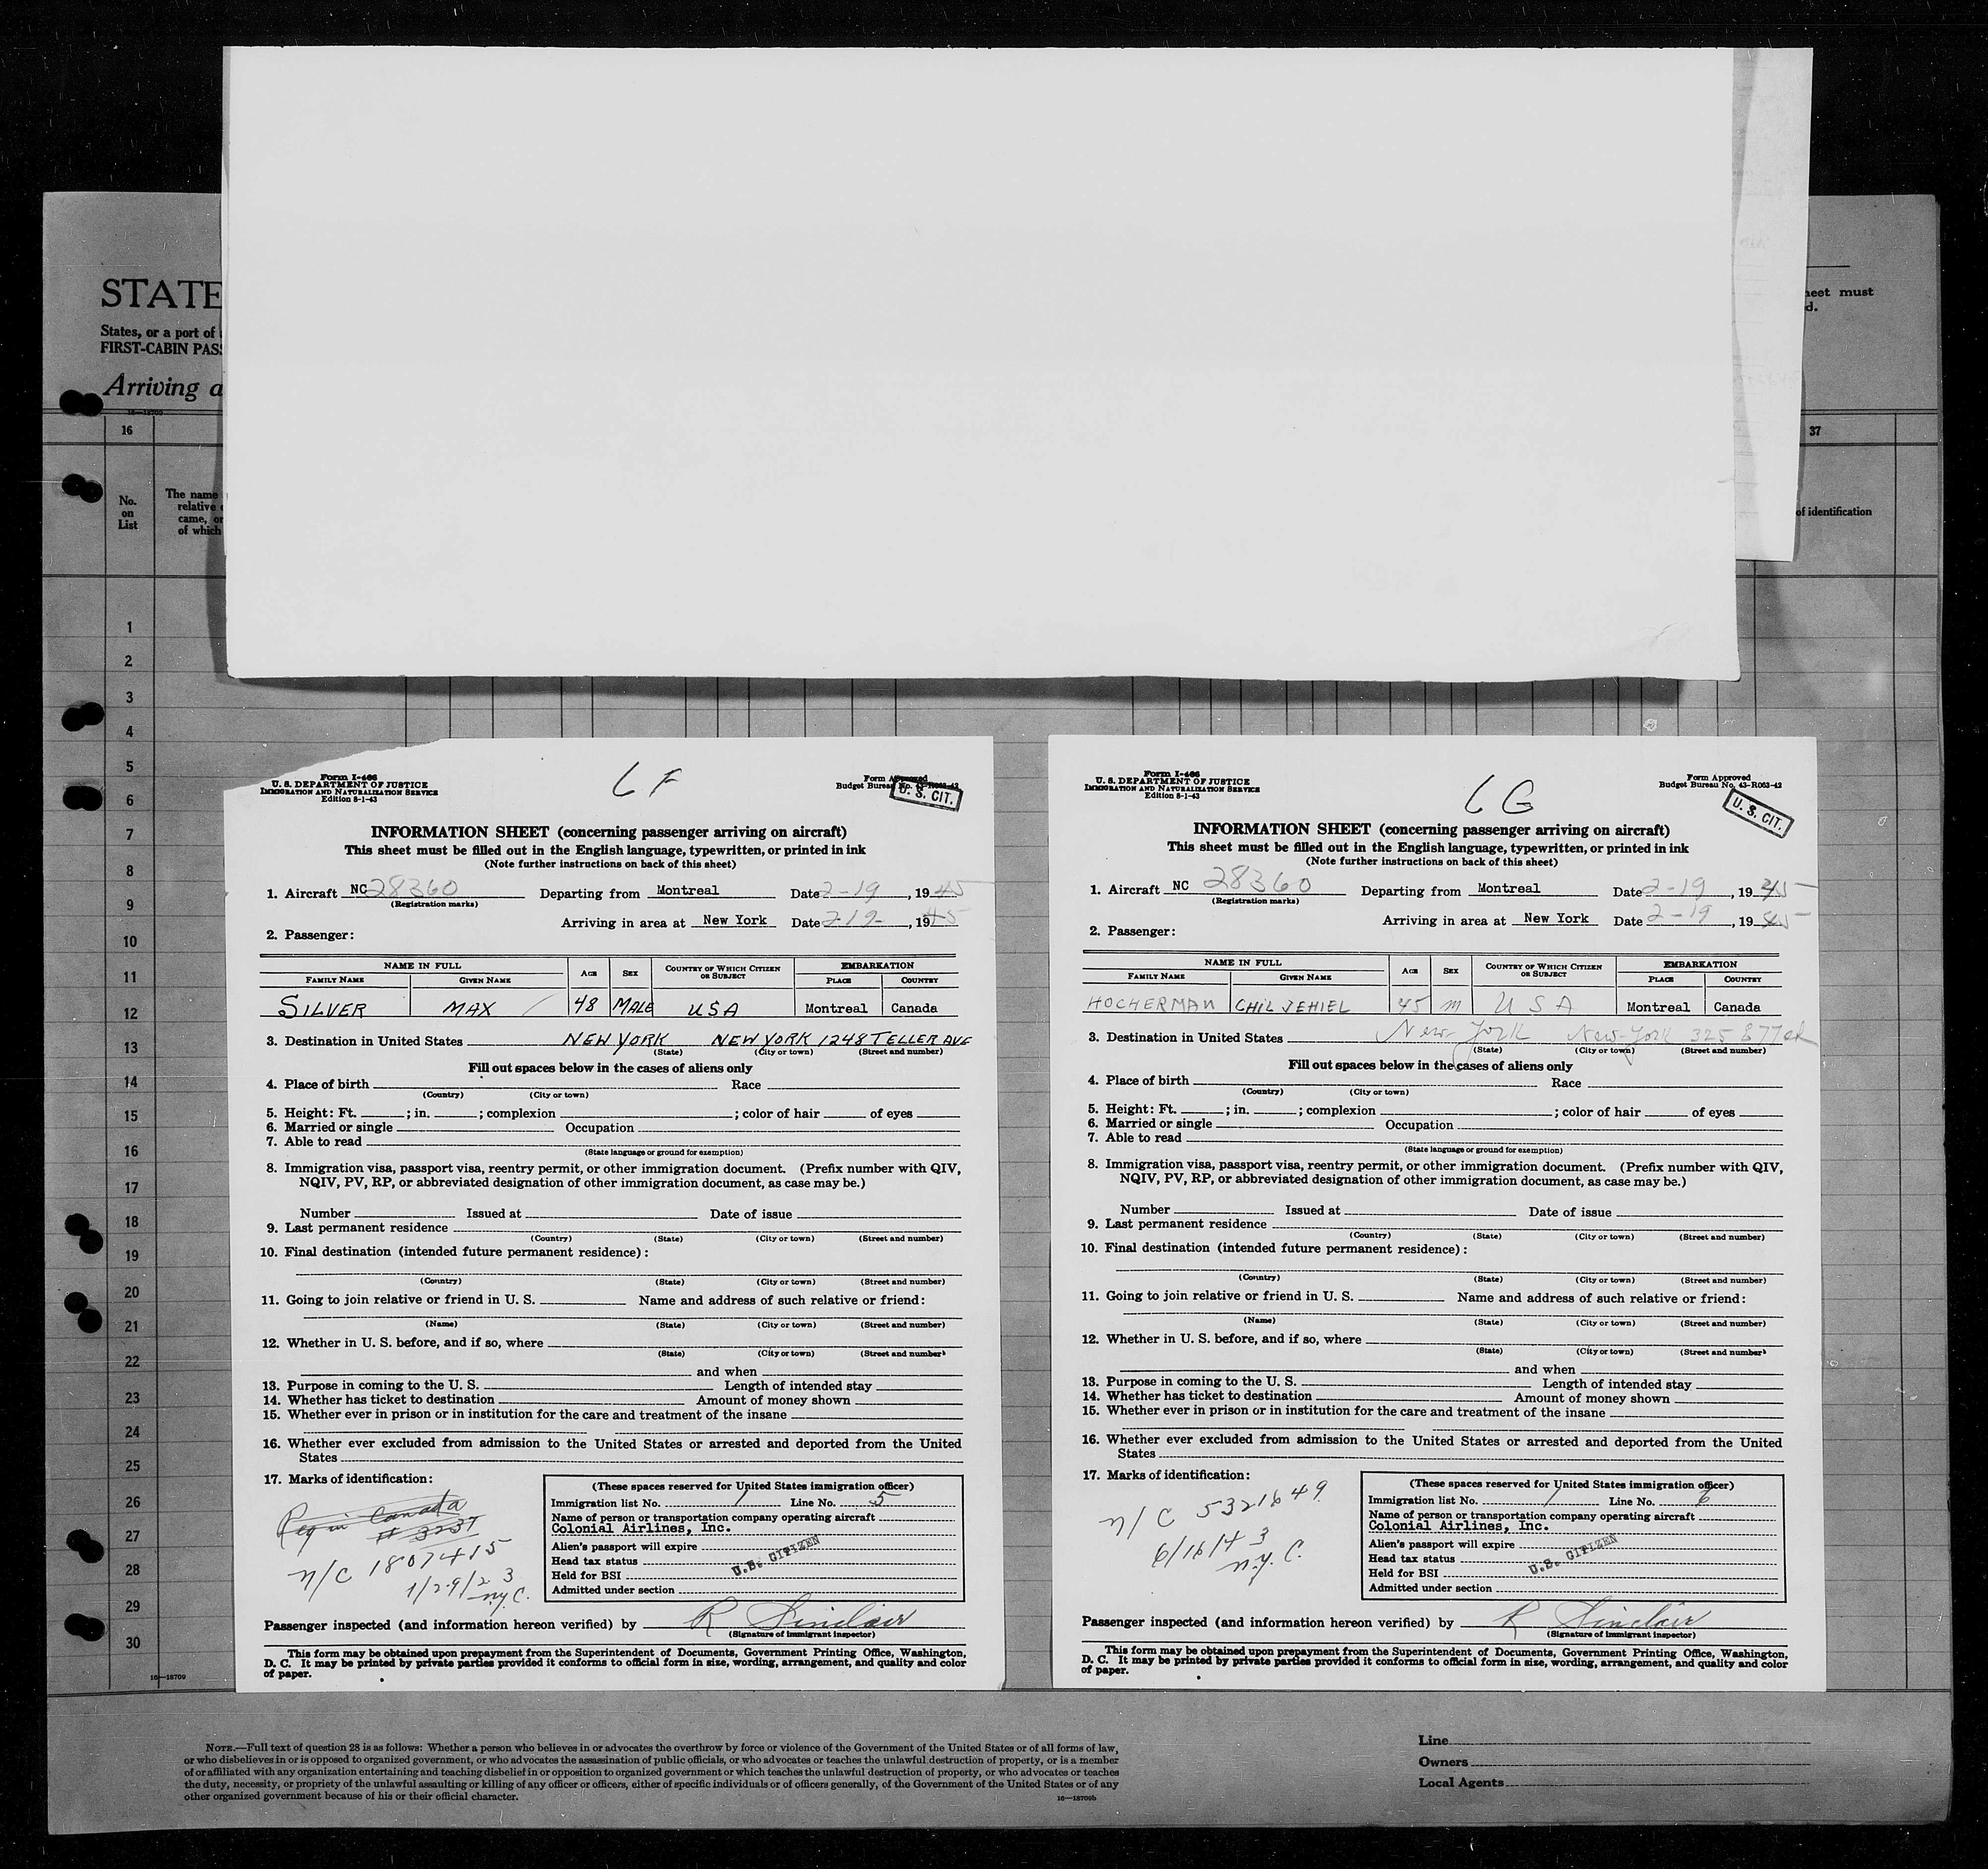 STATE
States, or a port of
FIRST-CABIN PAS
Arriving a
16—18709
16
No.
on
List
The name
relative
came, or
of which
heet must
d.
37
of identification
1
2
3
4
5
6
7
8
9
10
11
12
13
14
15
16
17
18
19
20
21
22
23
24
25
26
27
28
29
30
16—18709
6F
Form I-466
U. S. DEPARTMENT OF JUSTICE
IMMIGRATION AND NATURALIZATION SERVICE
Edition 8-1-43
Form Approved
Budget Bureau No. 43-R063-42
U. S. CIT.
INFORMATION SHEET (concerning passenger arriving on aircraft)
This sheet must be filled out in the English language, typewritten, or printed in ink
(Note further instructions on back of this sheet)
1. Aircraft NC 28360 Departing from Montreal Date 2-19, 1945
(Registration marks)
Arriving in area at New York Date 2-19-, 1945
2. Passenger:
NAME IN FULL AGE SEX COUNTRY OF WHICH CITIZEN OR SUBJECT EMBARKATION
FAMILY NAME GIVEN NAME PLACE COUNTRY
SILVER MAX 48 MALE USA Montreal Canada
3. Destination in United States NEW YORK NEW YORK 1248 TELLER AVE
(State) (City or town) (Street and number)
Fill out spaces below in the cases of aliens only
4. Place of birth Race
(Country) (City or town)
5. Height: Ft. ; in. ; complexion ; color of hair of eyes
6. Married or single Occupation
7. Able to read
(State language or ground for exemption)
8. Immigration visa, passport visa, reentry permit, or other immigration document. (Prefix number with QIV,
NQIV, PV, RP, or abbreviated designation of other immigration document, as case may be.)
Number Issued at Date of issue
9. Last permanent residence
(Country) (State) (City or town) (Street and number)
10. Final destination (intended future permanent residence):
(Country) (State) (City or town) (Street and number)
11. Going to join relative or friend in U. S. Name and address of such relative or friend:
(Name) (State) (City or town) (Street and number)
12. Whether in U. S. before, and if so, where
(State) (City or town) (Street and number)
and when
13. Purpose in coming to the U. S. Length of intended stay
14. Whether has ticket to destination Amount of money shown
15. Whether ever in prison or in institution for the care and treatment of the insane
16. Whether ever excluded from admission to the United States or arrested and deported from the United
States
17. Marks of identification:
Reg in Canada
# 3237
n/c 1807415
1/29/23
NYC.
(These spaces reserved for United States immigration officer)
Immigration list No. 1 Line No. 5
Name of person or transportation company operating aircraft
Colonial Airlines, Inc.
Alien's passport will expire
Head tax status
U.S. CITIZEN
Held for BSI
Admitted under section
Passenger inspected (and information hereon verified) by R Sinclair
(Signature of immigrant inspector)
This form may be obtained upon prepayment from the Superintendent of Documents, Government Printing Office, Washington,
D. C. It may be printed by private parties provided it conforms to official form in size, wording, arrangement, and quality and color
of paper.
6G
Form I-466
U. S. DEPARTMENT OF JUSTICE
IMMIGRATION AND NATURALIZATION SERVICE
Edition 8-1-43
Form Approved
Budget Bureau No. 43-R063-42
U. S. CIT.
INFORMATION SHEET (concerning passenger arriving on aircraft)
This sheet must be filled out in the English language, typewritten, or printed in ink
(Note further instructions on back of this sheet)
1. Aircraft NC 28360 Departing from Montreal Date 2-19, 1945
(Registration marks)
Arriving in area at New York Date 2-19, 1945
2. Passenger:
NAME IN FULL AGE SEX COUNTRY OF WHICH CITIZEN OR SUBJECT EMBARKATION
FAMILY NAME GIVEN NAME PLACE COUNTRY
HOCHERMAN CHIL JEHIEL 45 m USA Montreal Canada
3. Destination in United States New York New-York 325 E 77
(State) (City or town) (Street and number)
Fill out spaces below in the cases of aliens only
4. Place of birth Race
(Country) (City or town)
5. Height: Ft. ; in. ; complexion ; color of hair of eyes
6. Married or single Occupation
7. Able to read
(State language or ground for exemption)
8. Immigration visa, passport visa, reentry permit, or other immigration document. (Prefix number with QIV,
NQIV, PV, RP, or abbreviated designation of other immigration document, as case may be.)
Number Issued at Date of issue
9. Last permanent residence
(Country) (State) (City or town) (Street and number)
10. Final destination (intended future permanent residence):
(Country) (State) (City or town) (Street and number)
11. Going to join relative or friend in U. S. Name and address of such relative or friend:
(Name) (State) (City or town) (Street and number)
12. Whether in U. S. before, and if so, where
(State) (City or town) (Street and number)
and when
13. Purpose in coming to the U. S. Length of intended stay
14. Whether has ticket to destination Amount of money shown
15. Whether ever in prison or in institution for the care and treatment of the insane
16. Whether ever excluded from admission to the United States or arrested and deported from the United
States
17. Marks of identification:
n/c 5321649
6/16/43
N.Y.C.
(These spaces reserved for United States immigration officer)
Immigration list No. 1 Line No. 6
Name of person or transportation company operating aircraft
Colonial Airlines, Inc.
Alien's passport will expire
Head tax status
U.S. CITIZEN
Held for BSI
Admitted under section
Passenger inspected (and information hereon verified) by R Sinclair
(Signature of immigrant inspector)
This form may be obtained upon prepayment from the Superintendent of Documents, Government Printing Office, Washington,
D. C. It may be printed by private parties provided it conforms to official form in size, wording, arrangement, and quality and color
of paper.
NOTE.—Full text of question 28 is as follows: Whether a person who believes in or advocates the overthrow by force or violence of the Government of the United States or of all forms of law,
or who disbelieves in or is opposed to organized government, or who advocates the assassination of public officials, or who advocates or teaches the unlawful destruction of property, or is a member
of or affiliated with any organization entertaining and teaching disbelief in or opposition to organized government or which teaches the unlawful destruction of property, or who advocates or teaches
the duty, necessity, or propriety of the unlawful assaulting or killing of any officer or officers, either of specific individuals or of officers generally, of the Government of the United States or of any
other organized government because of his or their official character.
16—18709b
Line
Owners
Local Agents